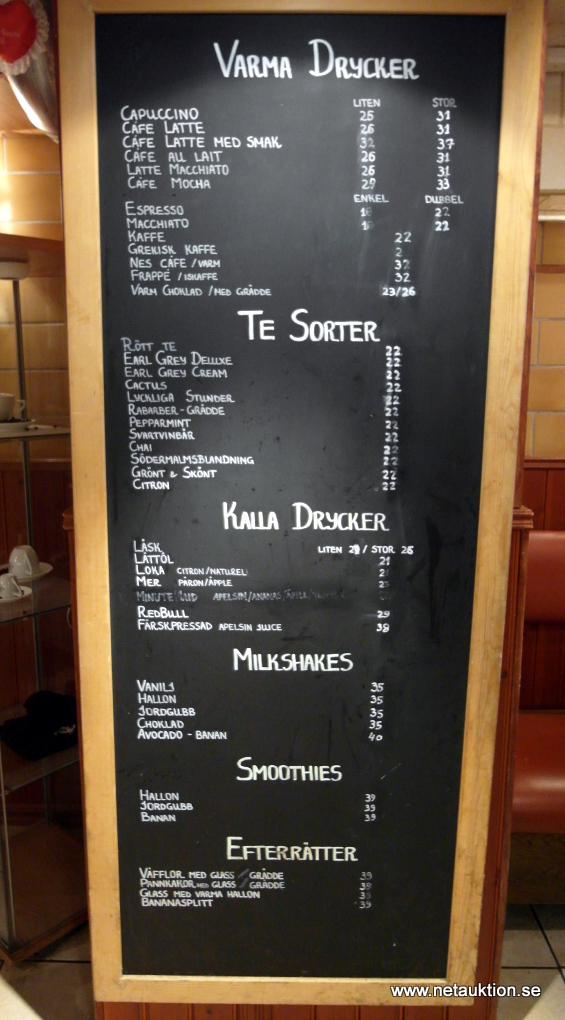 VARMA DRYCKER
LITEN STOR
CAPUCCINO 25 31
CAFE LATTE 26 31
CAFE LATTE MED SMAK 32 37
CAFE AU LAIT 26 31
LATTE MACCHIATO 26 31
CAFE MOCHA 29 33
ENKEL DUBBEL
ESPRESSO 22
MACCHIATO 22
KAFFE 22
GREKISK KAFFE
NES CAFE /VARM 32
FRAPPE /ISKAFFE 32
VARM CHOKLAD /MED GRÄDDE 23/26
TE SORTER
RÖTT TE 22
EARL GREY DELUXE 22
EARL GREY CREAM 22
CACTUS 22
LYCKLIGA STUNDER 22
RABARBER-GRÄDDE 22
PEPPARMINT 22
SVARTVINBÄR 22
CHAI 22
SÖDERMALMSBLANDNING 22
GRÖNT & SKÖNT 22
CITRON 22
KALLA DRYCKER
LÄSK LITEN 21 / STOR 26
LÄTTÖL 21
LOKA CITRON/NATUREL
MER PÄRON/ÄPPLE
MINUTE APELSIN/ANANAS/ÄPPLE/
REDBULL 29
FÄRSKPRESSAD APELSIN JUICE 39
MILKSHAKES
VANILJ 35
HALLON 35
JORDGUBB 35
CHOKLAD 35
AVOCADO - BANAN 40
SMOOTHIES
HALLON 39
JORDGUBB 39
BANAN 39
EFTERRÄTTER
VÅFFLOR MED GLASS / GRÄDDE 39
PANNKAKOR MED GLASS / GRÄDDE 39
GLASS MED VARMA HALLON 39
BANANASPLITT 39
www.netauktion.se